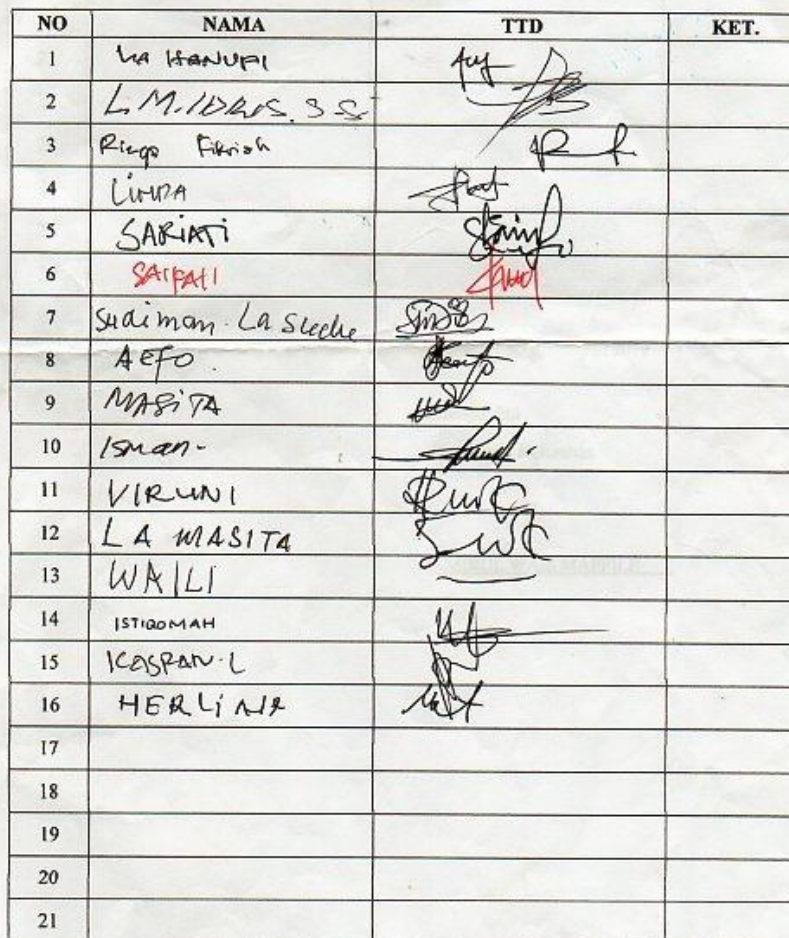 NO NAMA TTD KET.
1 LA HANUPI
2 L.M.IDRIS. S.S
3 Fikriah
4 LINDA
5 SARIATI
6 SAIFATI
7 Sudiman. La
8 AEFO.
9 MASITA
10 Isman-
11 VIRUNI
12 LA MASITA
13 WAILI
14 ISTIQOMAH
15 KASPAN.L
16 HERLiNA
17
18
19
20
21